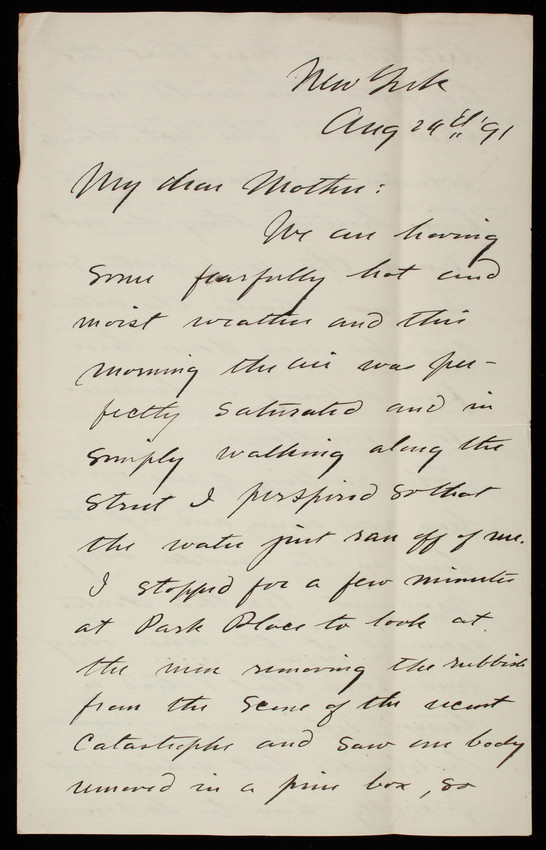 New York
Aug 24th '91
My dear Mother:
We are having
some fearfully hot and
moist weather and this
morning the air was per-
fectly saturated and in
simply walking along the
street I perspired so that
the water just ran off of me.
I stopped for a few minutes
at Park Place to look at
the men removing the rubbish
from the scene of the recent
Catastrophe and saw one body
removed in a pine box, so